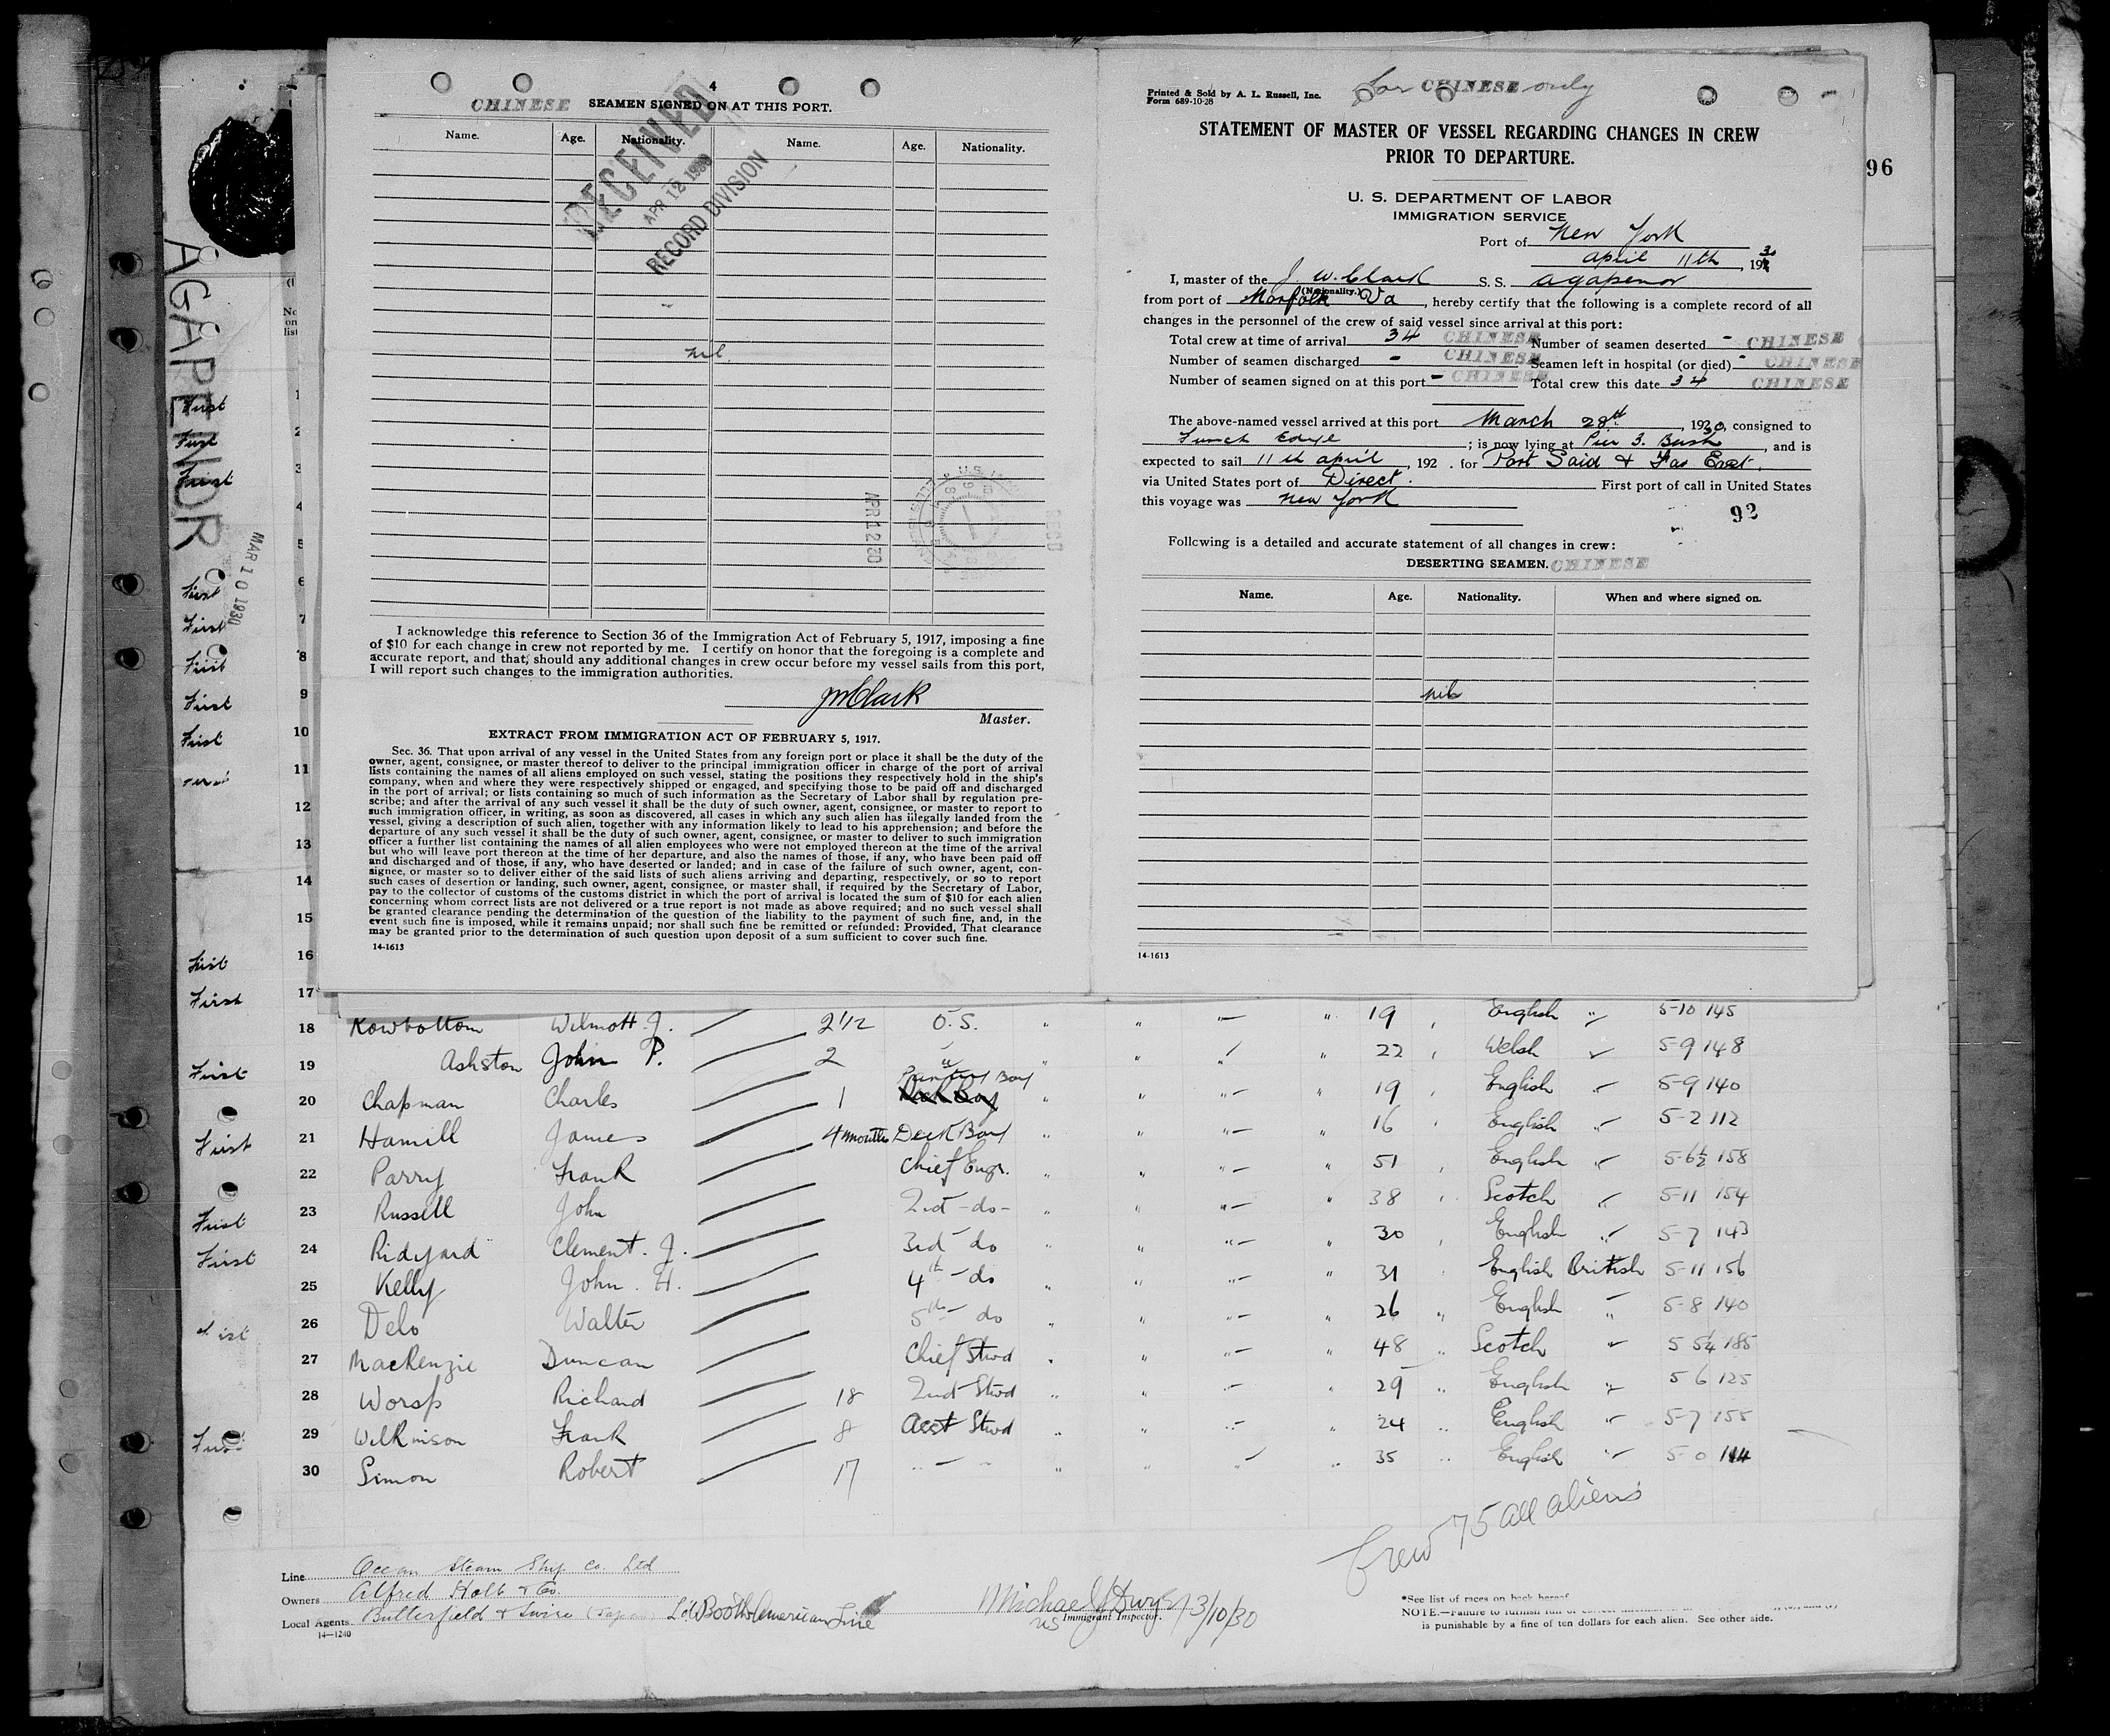 4
CHINESE SEAMEN SIGNED ON AT THIS PORT.
Name. Age. Nationality. Name. Age. Nationality.
RECEIVED
APR 12 1930
RECORD DIVISION
nil
APR 12 30
I acknowledge this reference to Section 36 of the Immigration Act of February 5, 1917, imposing a fine
of $10 for each change in crew not reported by me. I certify on honor that the foregoing is a complete and
accurate report, and that, should any additional changes in crew occur before my vessel sails from this port,
I will report such changes to the immigration authorities.
JWClark
Master.
EXTRACT FROM IMMIGRATION ACT OF FEBRUARY 5, 1917.
Sec. 36. That upon arrival of any vessel in the United States from any foreign port or place it shall be the duty of the
owner, agent, consignee, or master thereof to deliver to the principal immigration officer in charge of the port of arrival
lists containing the names of all aliens employed on such vessel, stating the positions they respectively hold in the ship's
company, when and where they were respectively shipped or engaged, and specifying those to be paid off and discharged
in the port of arrival; or lists containing so much of such information as the Secretary of Labor shall by regulation pre-
scribe; and after the arrival of any such vessel it shall be the duty of such owner, agent, consignee, or master to report to
such immigration officer, in writing, as soon as discovered, all cases in which any such alien has illegally landed from the
vessel, giving a description of such alien, together with any information likely to lead to his apprehension; and before the
departure of any such vessel it shall be the duty of such owner, agent, consignee, or master to deliver to such immigration
officer a further list containing the names of all alien employees who were not employed thereon at the time of the arrival
but who will leave port thereon at the time of her departure, and also the names of those, if any, who have been paid off
and discharged and of those, if any, who have deserted or landed; and in case of the failure of such owner, agent, con-
signee, or master so to deliver either of the said lists of such aliens arriving and departing, respectively, or so to report
such cases of desertion or landing, such owner, agent, consignee, or master shall, if required by the Secretary of Labor,
pay to the collector of customs of the customs district in which the port of arrival is located the sum of $10 for each alien
concerning whom correct lists are not delivered or a true report is not made as above required; and no such vessel shall
be granted clearance pending the determination of the question of the liability to the payment of such fine, and, in the
event such fine is imposed, while it remains unpaid; nor shall such fine be remitted or refunded: Provided, That clearance
may be granted prior to the determination of such question upon deposit of a sum sufficient to cover such fine.
14-1613
for CHINESE only
Printed & Sold by A. L. Russell, Inc.
Form 689-10-28
STATEMENT OF MASTER OF VESSEL REGARDING CHANGES IN CREW
PRIOR TO DEPARTURE.
96
U. S. DEPARTMENT OF LABOR
IMMIGRATION SERVICE
Port of New York
April 11th, 1930
I, master of the J W. Clark S. S. Agapenor
(Nationality.)
from port of Norfolk Va, hereby certify that the following is a complete record of all
changes in the personnel of the crew of said vessel since arrival at this port:
Total crew at time of arrival 34 CHINESE Number of seamen deserted - CHINESE
Number of seamen discharged - CHINESE Seamen left in hospital (or died) - CHINESE
Number of seamen signed on at this port - CHINESE Total crew this date 34 CHINESE
The above-named vessel arrived at this port March 28th, 1930, consigned to
Funch Edye; is now lying at Pier 3. Bush, and is
expected to sail 11th April, 192 . for Port Said & Far East,
via United States port of Direct. First port of call in United States
this voyage was New York
92
Following is a detailed and accurate statement of all changes in crew:
DESERTING SEAMEN. CHINESE
Name. Age. Nationality. When and where signed on.
nil
14-1613
AGAPENOR
MAR 10 1930
First 1
First 2
First 3
4
5
First 6
First 7
First 8
First 9
First 10
First 11
12
13
14
15
First 16
First 17
18 Rowbottom Wilmott J. 2 1/2 O.S. " " " 19 English " 5-10 145
First 19 Ashston John P. 2 " " " " 22 Welsh 5-9 148
20 Chapman Charles 1 Pantry Boy " " " 19 English " 5-9 140
First 21 Hamill James 4 months Deck Boy " " " 16 English " 5-2 112
22 Parry Frank Chief Engr. " " " 51 English " 5-6½ 158
First 23 Russell John 2nd -do- " " " 38 Scotch " 5-11 154
First 24 Ridyard Clement. J. 3rd do " " " 30 English " 5-7 143
25 Kelly John. H. 4th - do " " " 31 English British 5-11 156
First 26 Delo Walter 5th - do " " " 26 " English " 5-8 140
27 MacKenzie Duncan Chief Stwd " " " 48 " Scotch " 5 5¼ 185
28 Worsp Richard 18 2nd Stwd " " " 29 " English " 5 6 125
First 29 Wilkinson Frank 8 Asst Stwd " " " 24 " English " 5-7 155
30 Simon Robert 17 " - " " " " 35 " English " 5-0 114
Crew 75 all aliens
Line Ocean Steam Ship Co. Ltd
Owners Alfred Holt & Co.
Local Agents Butterfield & Swire (Japan) Ltd Booth American Line
14-1240
Michael J Dwyer 3/10/30
US Immigrant Inspector.
*See list of races on back hereof
NOTE.—Failure to furnish full or correct information
is punishable by a fine of ten dollars for each alien. See other side.